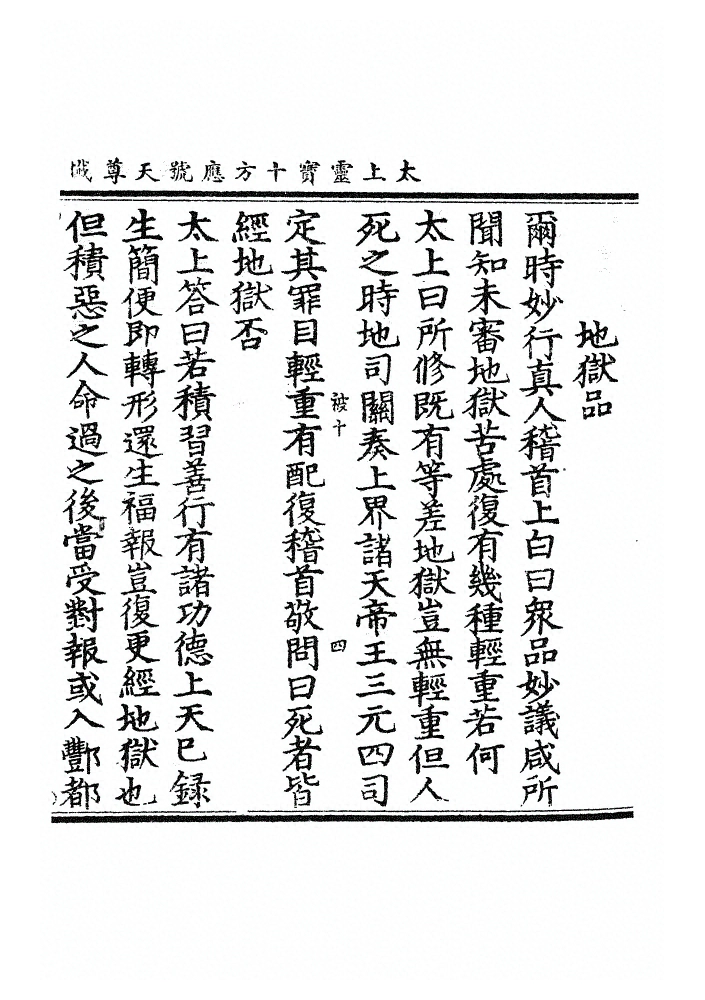 太上靈寶十方應號天尊懴
地獄品
爾時妙行真人稽首上白曰衆品妙議咸所
聞知未審地獄苦處復有幾種輕重若何
太上曰所修既有等差地獄豈無輕重但人
死之時地司關奏上界諸天帝王三元四司
被十 四
定其罪目輕重有配復稽首敬問曰死者皆
經地獄否
太上答曰若積習善行有諸功德上天已録
生簡便即轉形還生福報豈復更經地獄也
但積惡之人命過之後當受對報或入酆都